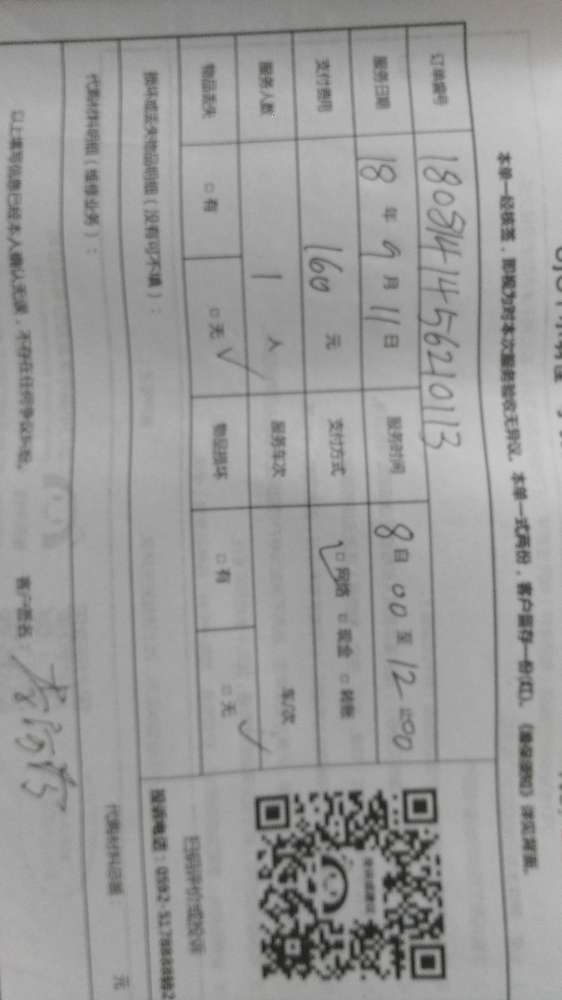 本单一经核签，即视为对本次服务验收无异议。本单一式两份，客户留存一份(红)。
订单编号 180814145621013
服务日期 18 年 9 月 11 日 服务时间 8 : 00 至 12 : 00
支付费用 160 元 支付方式 □ 网络 □ 现金 □ 转账
服务人数 1 人 服务车次 车/次
物品丢失 □ 有 □ 无 ✓ 物品损坏 □ 有 □ 无 ✓
损坏或丢失物品明细（没有可不填）：
扫码评价或投诉
投诉电话：0592
代购材料明细（维修业务）：
代购材料总额 元
以上填写信息已经本人确认无误，不存在任何争议纠纷。 客户签名：